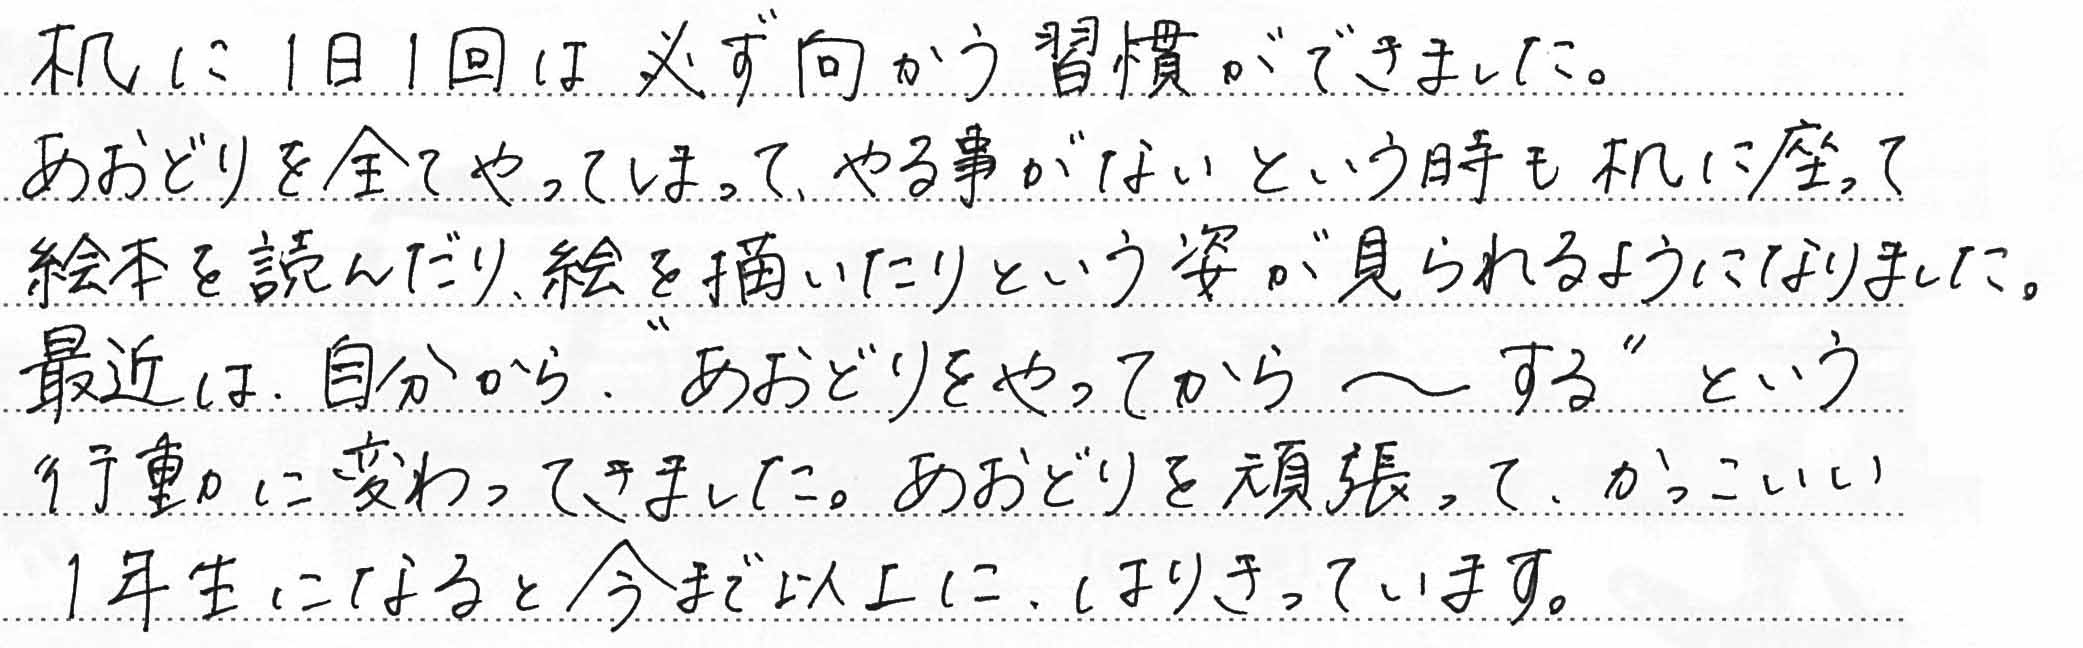 机に1日1回は必ず向かう習慣ができました。
あおどりを全てやってしまって、やる事がないという時も机に座って
絵本を読んだり、絵を描いたりという姿が見られるようになりました。
最近は、自分から、“あおどりをやってから〜する”という
行動に変わってきました。あおどりを頑張って、かっこいい
1年生になると今まで以上に、はりきっています。